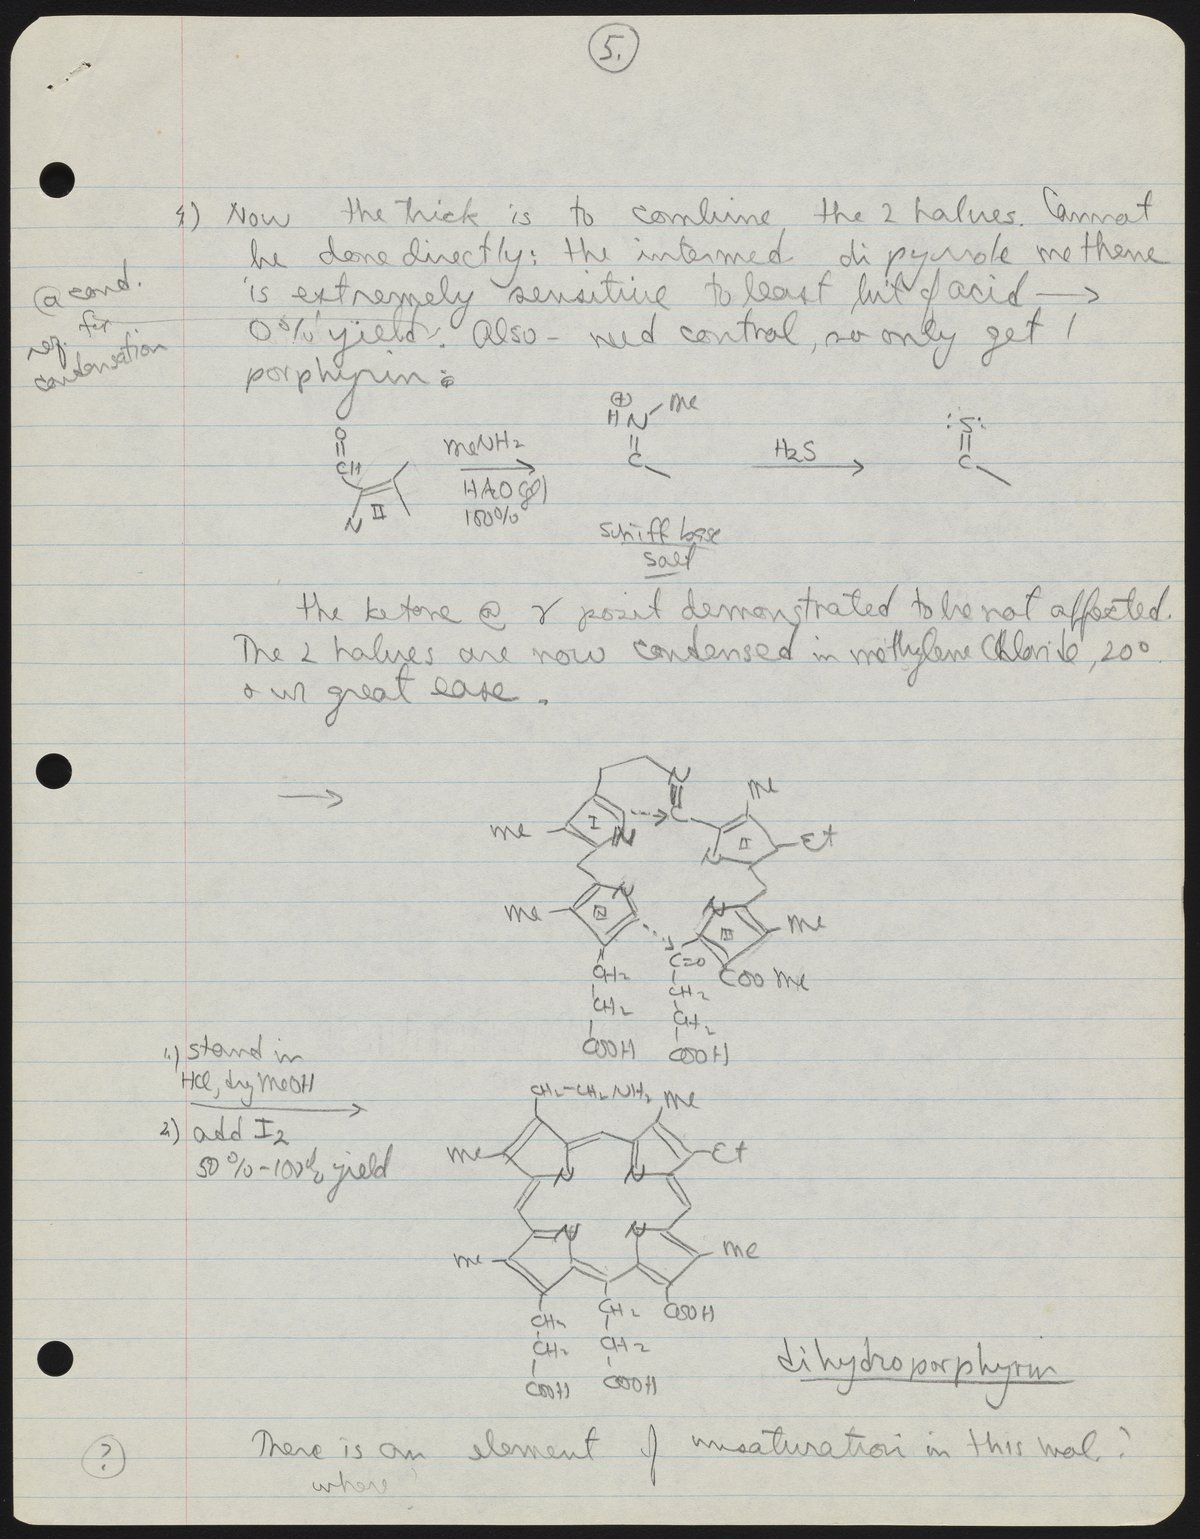 5.
4) Now the trick is to combine the 2 halves. Cannot
be done directly; the intermed. dipyrrole methene
is extremely sensitive to least bit of acid →
0% yield. Also - need control, so only get 1
porphyrin:
@ cond.
req. for
condensation
O
CH
N
II
MeNH2
HAO(gl)
100%
⊕
H N Me
C
Schiff base
salt
H2S
:S:
C
the ketone @ γ posit demonstrated to be not affected.
The 2 halves are now condensed in methylene Chloride, 20°
& w/ great ease.
→
N
Me
Me I N C II Et
N
N N
Me IV III Me
CH2 C=O COOMe
CH2 CH2
COOH CH2
COOH
1.) stand in
HCl, dry MeOH
2.) add I2
50%-100% yield
CH2-CH2NH2 Me
Me Et
N N
N N
Me Me
CH2 CH2 COOH
CH2 CH2
COOH COOH
dihydroporphyrin
? There is an element of unsaturation in this mol.?
where?